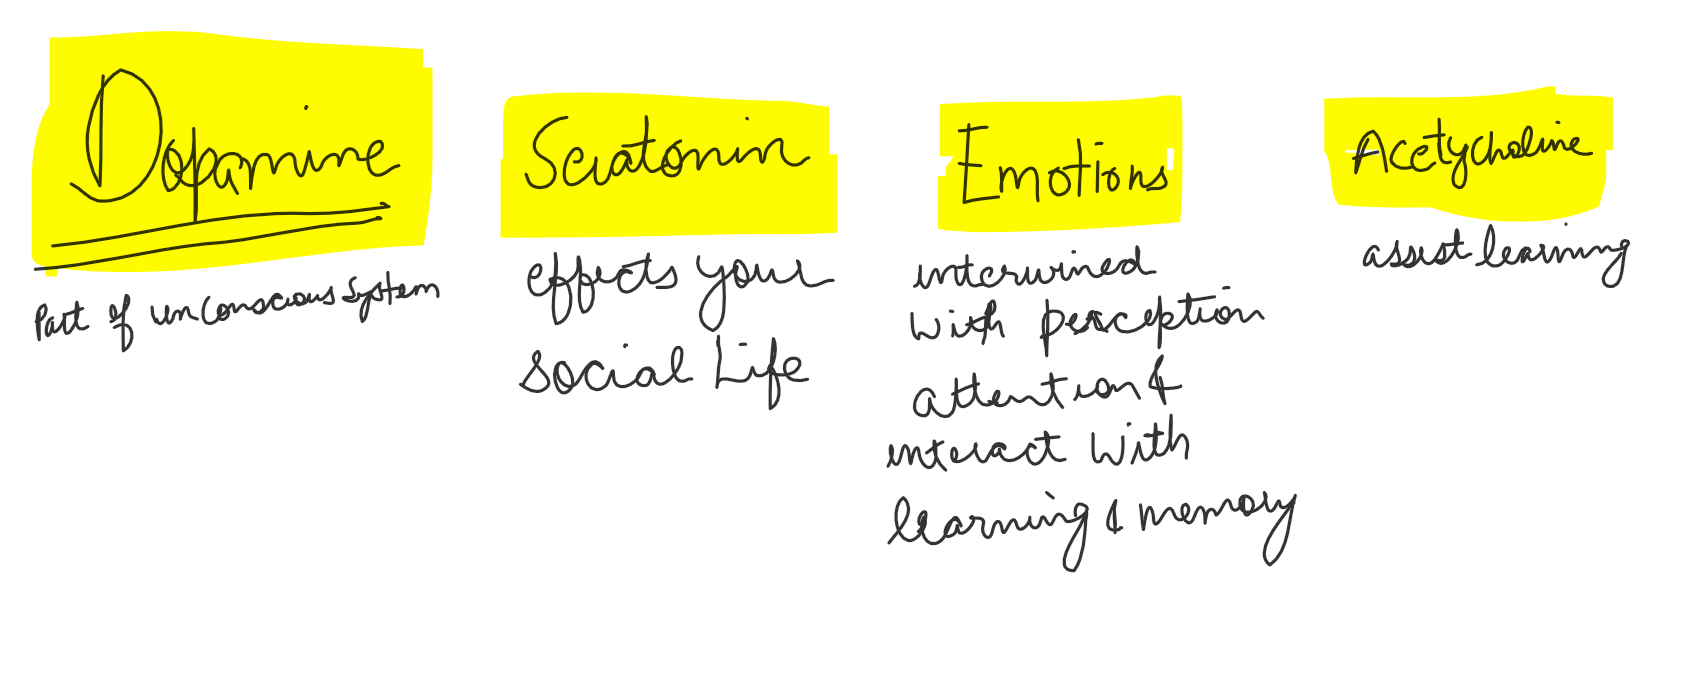 Dopamine
Part of unconscious system
Seratonin
effects your
social Life
Emotions
interwined
with perception
attention &
interact with
learning & memory
Acetycholine
assist learning